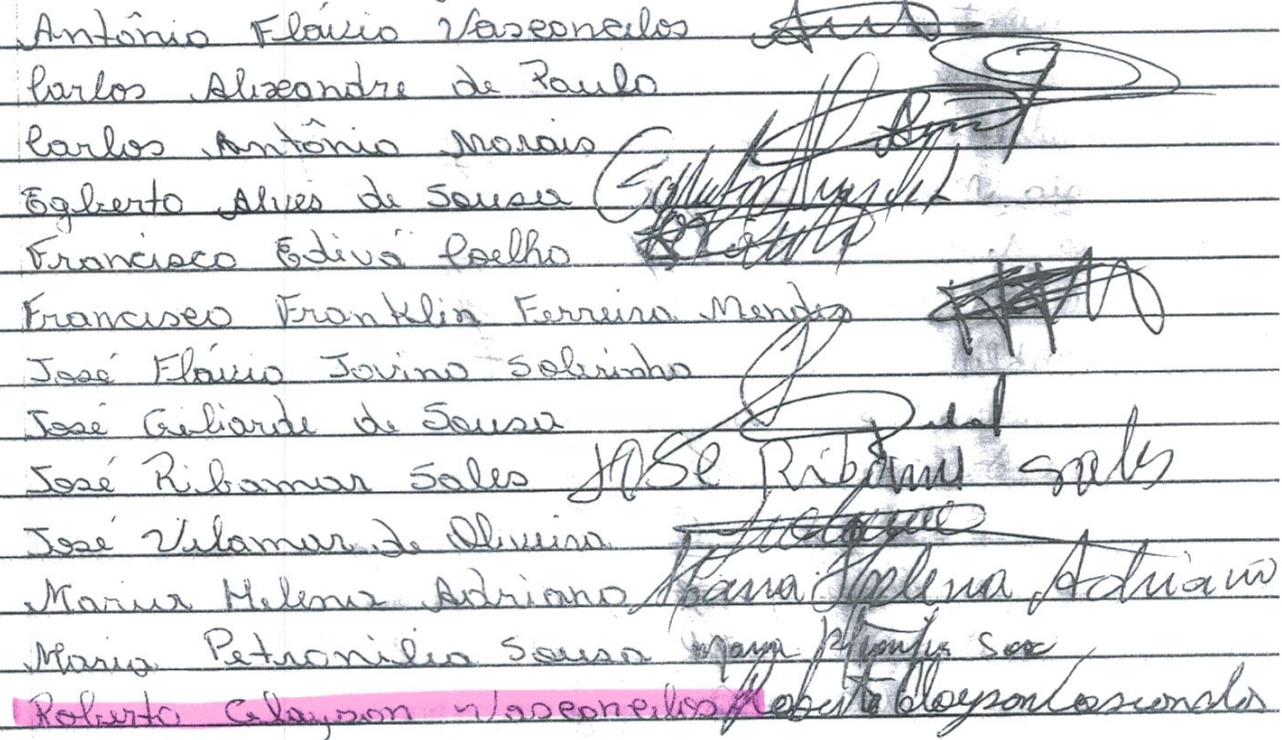 Antônio Flávio Vasconcelos
Carlos Alexandre de Paulo
Carlos Antônio Morais
Egberto Alves de Sousa
Francisco Edivá Coelho
Francisco Franklin Ferreira Mendes
José Flávio Jovino Sobrinho
José Giliarde de Sousa
José Ribamar Sales JOSE Ribamar Sales
José Vilamar de Oliveira
Maria Helena Adriano Maria Helena Adriano
Maria Petronilia Sousa Maria
Roberto Clayson Vasconcelos Roberto Clayson Vasconcelos